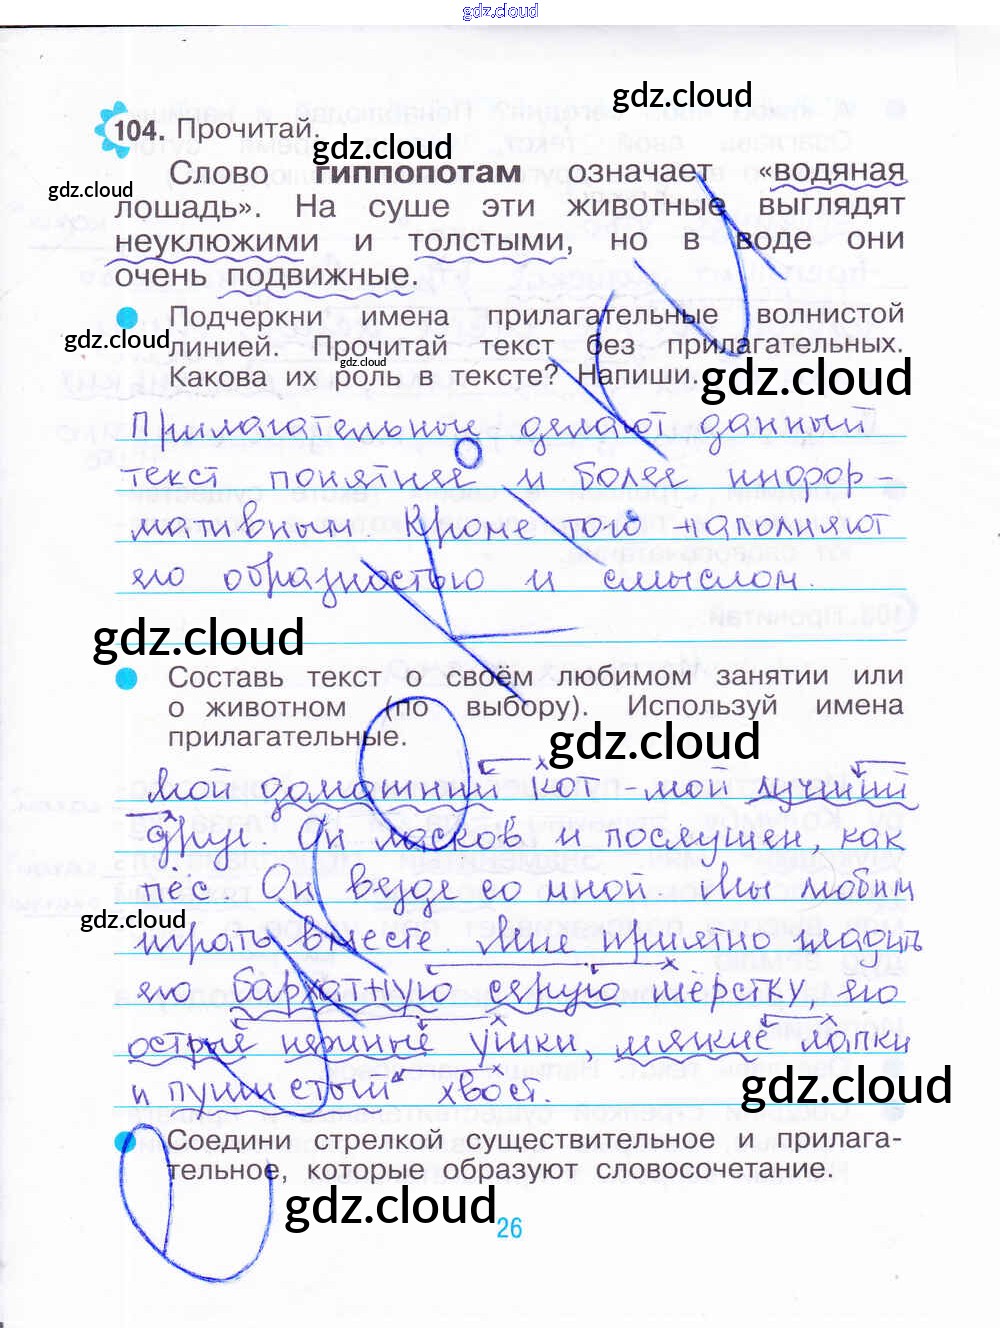 gdz.cloud
gdz.cloud
104. Прочитай.
gdz.cloud
Слово гиппопотам означает «водяная
gdz.cloud
лошадь». На суше эти животные выглядят
неуклюжими и толстыми, но в воде они
очень подвижные.
Подчеркни имена прилагательные волнистой
gdz.cloud
линией. Прочитай текст без прилагательных.
gdz.cloud
Какова их роль в тексте? Напиши.
gdz.cloud
Прилагательные делают данный
текст понятнее и более инфор-
мативным. Кроме того наполняют
его образностью и смыслом.
gdz.cloud
Составь текст о своём любимом занятии или
о животном (по выбору). Используй имена
прилагательные.
gdz.cloud
Мой домашний кот - мой лучший
друг. Он ласков и послушен, как
пёс. Он везде со мной. Мы любим
gdz.cloud
играть вместе. Мне приятно гладить
его бархатную серую шёрстку, его
острые нежные ушки, мягкие лапки
и пушистый хвост.
gdz.cloud
Соедини стрелкой существительное и прилага-
тельное, которые образуют словосочетание.
gdz.cloud
26